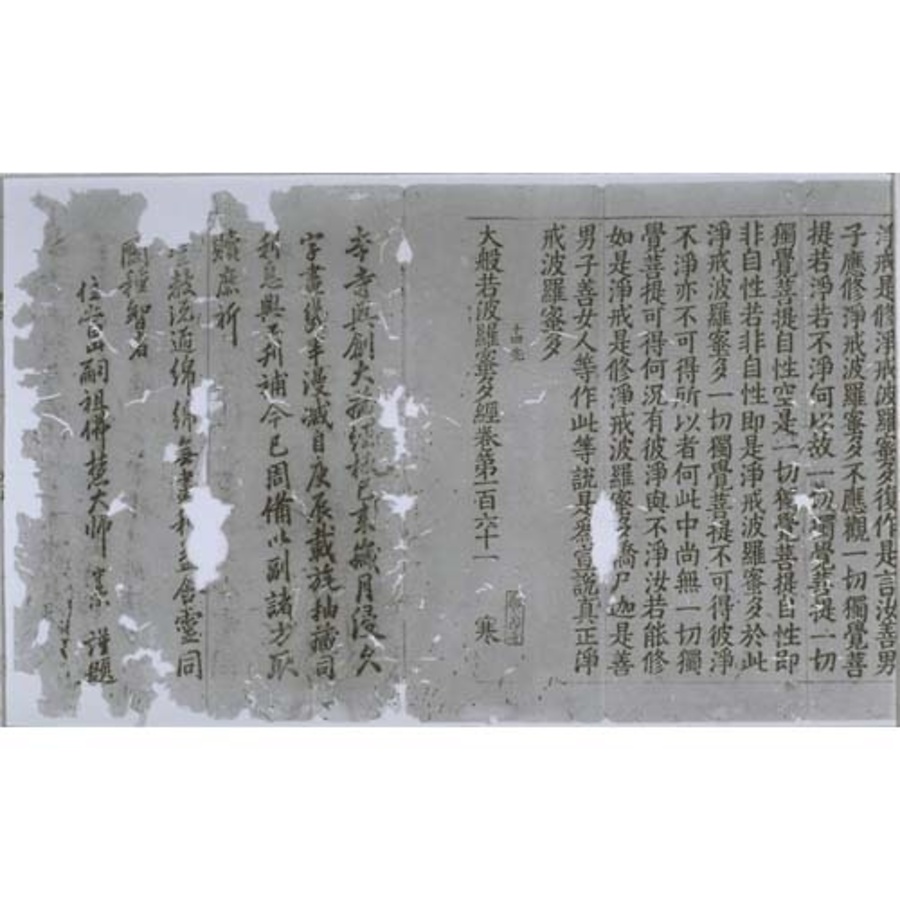 淨戒是修淨戒波羅蜜多復作是言汝善男
子應修淨戒波羅蜜多不應觀一切獨覺菩
提若淨若不淨何以故一切獨覺菩提一切
獨覺菩提自性空是一切獨覺菩提自性即
非自性若非自性即是淨戒波羅蜜多於此
淨戒波羅蜜多一切獨覺菩提不可得彼淨
不淨亦不可得所以者何此中尚無一切獨
覺菩提可得何況有彼淨與不淨汝若能修
如是淨戒是修淨戒波羅蜜多憍尸迦是善
男子善女人等作此等說是為宣說真正淨
戒波羅蜜多
大般若波羅蜜多經卷第一百六十一
寒
本寺興創大藏經板已未歲月浸久
字畫漫滅自庚辰載旋抽
利息與工刊補今已周備以副諸方
贖
綿綿無盡 含靈同
圓種智者
住 嗣祖佛慧大師 謹題